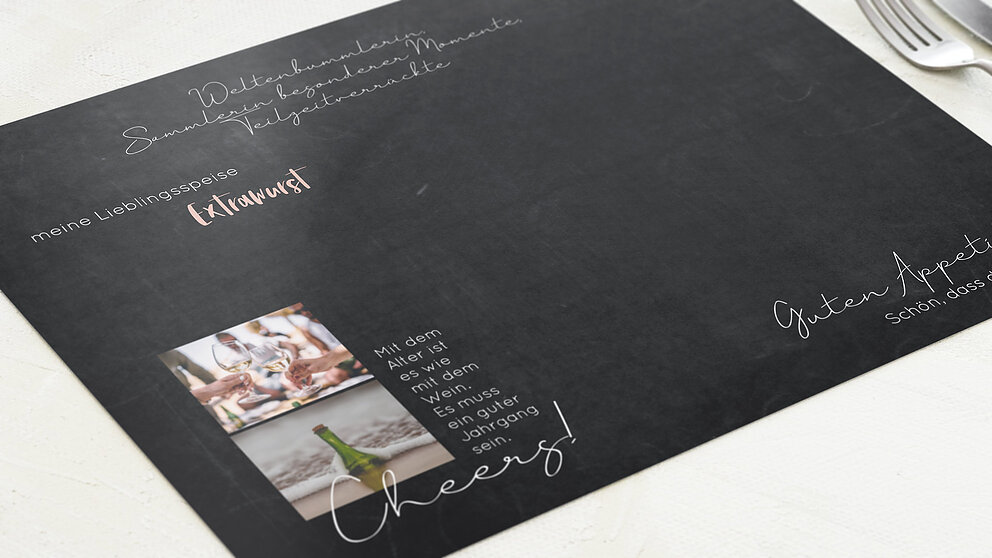 Weltenbummlerin,
Sammlerin besonderer Momente,
Teilzeitverrückte
meine Lieblingsspeise
Extrawurst
Mit dem
Alter ist
es wie
mit dem
Wein.
Es muss
ein guter
Jahrgang
sein.
Cheers!
Guten Appeti
Schön, dass d